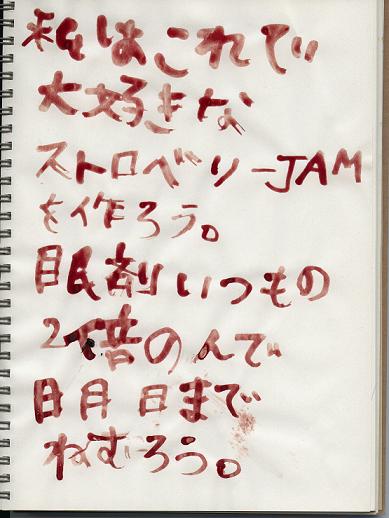 私はこれで
大好きな
ストロベリーJAM
を作ろう。
眠剤いつもの
2倍のんで
明日まで
ねむろう。